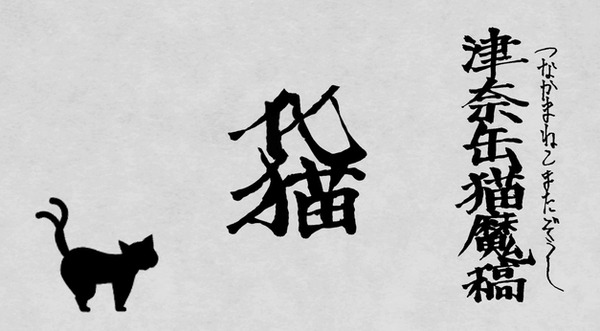 つなかまねこまたぞうし
津奈缶猫魔稿
化猫